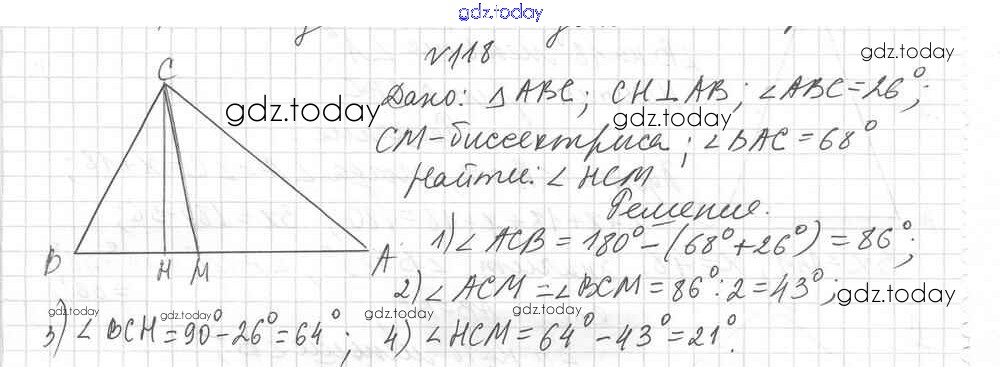 gdz.today
№118
gdz.today
C
Дано: △ABC; CH⊥AB; ∠ABC=26°;
gdz.today
gdz.today
CM-биссектриса; ∠BAC=68°
Найти: ∠HCM
Решение.
1) ∠ACB = 180°-(68°+26°) = 86°;
B H M A
2) ∠ACM = ∠BCM = 86°:2 = 43°;
gdz.today
gdz.today
gdz.today
gdz.today
gdz.today
3) ∠BCH = 90°-26° = 64°; 4) ∠HCM = 64°-43° = 21°.